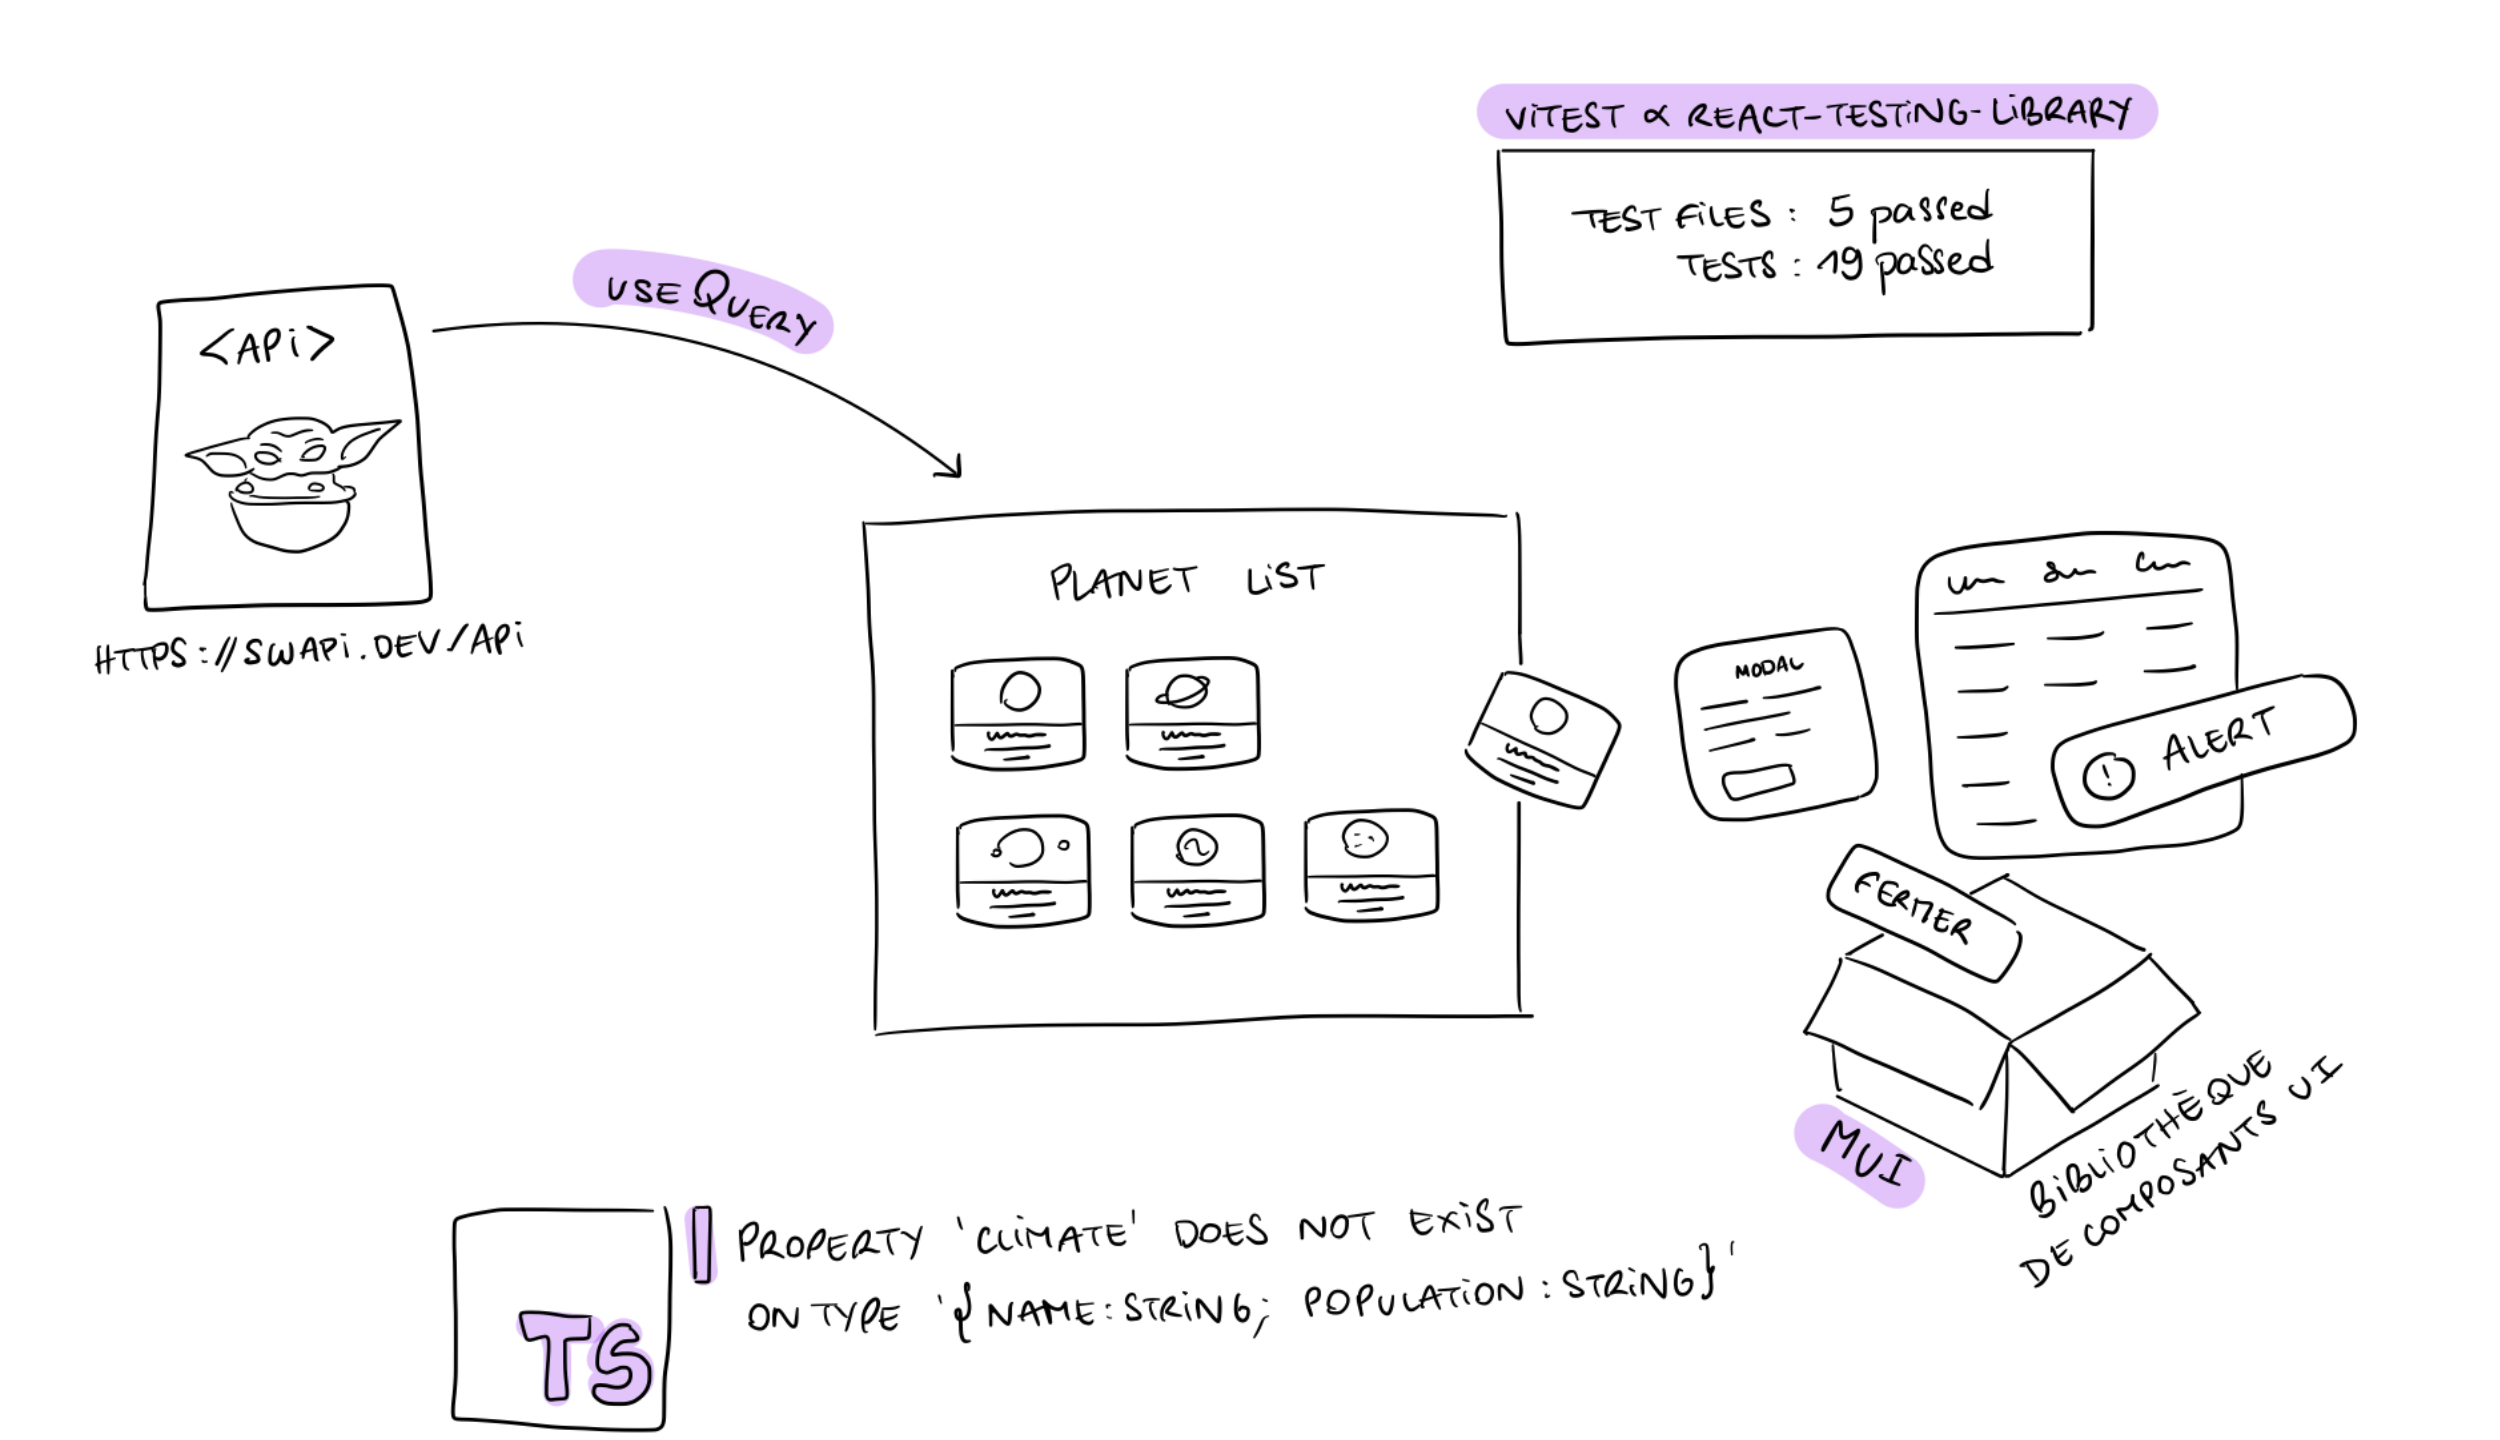 ViTEST & REACT-TESTiNG-LiBRARY
TEST FiLES : 5 passed
TESTS : 19 passed
USE QUERY
<APi>
HTTPS://SWAPi.DEV/APi
PLANET LiST
MODAL
ALERT
FERMER
MUI
BiBLiOTHÈQUE
DE COMPOSANTS UI
TS
PROPERTY 'CLiMATE' DOES NOT EXiST
ON TYPE '{ NAME: STRiNG; POPULATiON : STRiNG}'